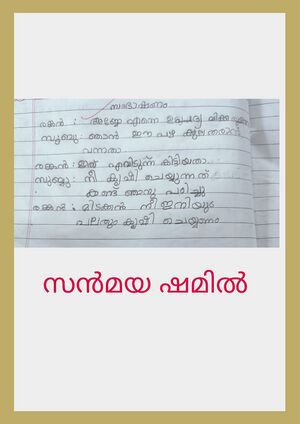 സംഭാഷണം
രങ്കൻ : എന്നെ
സുബ്ബു: ഞാൻ ഈ പഴ
വന്നതാ
രങ്കൻ: ഇത് എവിടുന്ന് കിട്ടിയതാ..
സുബ്ബു: നീ കൃഷി ചെയ്യുന്നത്
: കണ്ട് ഞാനും പഠിച്ചു
രങ്കൻ: മിടുക്കൻ നീ ഇനിയും
പലതും കൃഷി ചെയ്യണം
സൻമയ ഷമിൽ